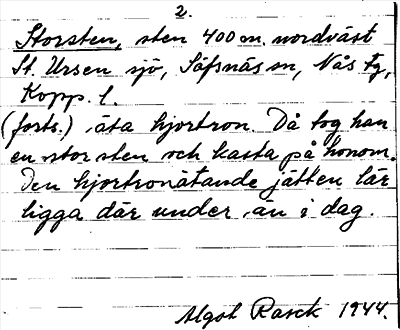 2.
Storsten, sten 400 m. nordväst
St. Ursen sjö, Säfsnäs sn, Nås tg,
Kopp. l.
(forts.) äta hjortron. Då tog han
en stor sten och kasta på honom.
Den hjortronätande jätten lär
ligga där under än i dag.
Algot Rasck 1944.